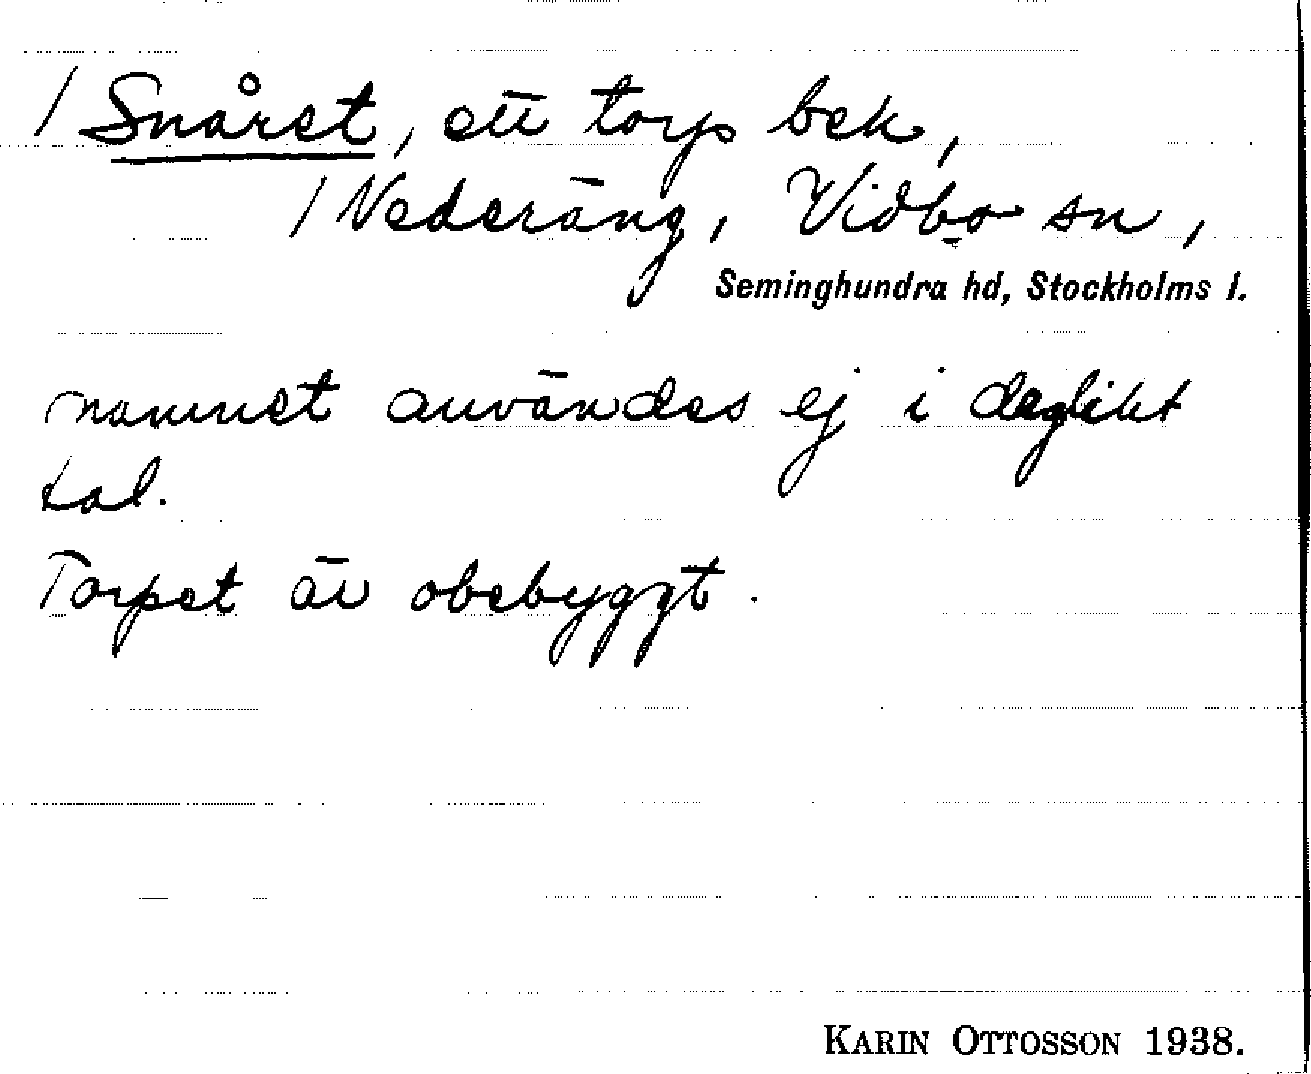 / Snåret, ett torp bek,
/ Nederäng, Vidbo sn,
Seminghundra hd, Stockholms l.
namnet användes ej i dagligt
tal.
Torpet är obebyggt.
KARIN OTTOSSON 1938.